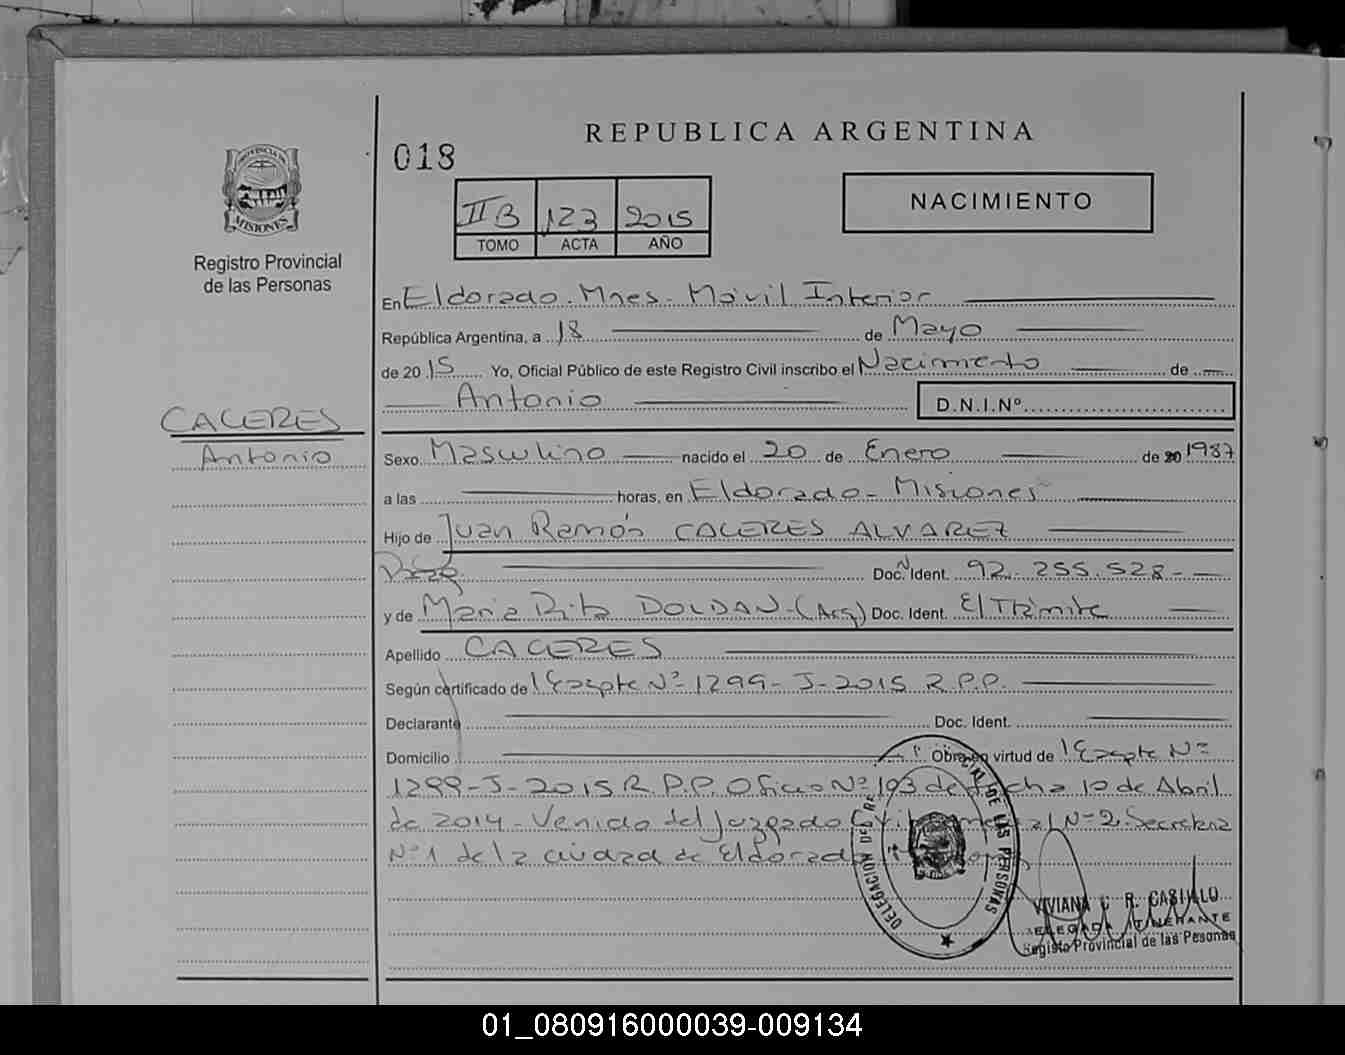 REPUBLICA ARGENTINA
018
NACIMIENTO
II B 123 2015
TOMO ACTA AÑO
PROVINCIA DE MISIONES
Registro Provincial
de las Personas
En Eldorado. Mnes. Móvil Interior
República Argentina, a 18 de Mayo
de 2015 Yo, Oficial Público de este Registro Civil inscribo el Nacimiento de
Antonio D.N.I.Nº
CACERES
Antonio
Sexo Masculino nacido el 20 de Enero de 1987
a las horas, en Eldorado - Misiones
Hijo de Juan Ramón CACERES ALVAREZ
Doc. Ident. 92.255.528-
y de Maria Rita DOLDAN-(Arg) Doc. Ident. E/Trámite
Apellido CACERES
Según certificado de Expte Nº 1299-J-2015 R.P.P.
Declarante Doc. Ident.
Domicilio Obra en virtud de Expte Nº
1299-J-2015 R.P.P. Oficio Nº 193 de fecha 10 de Abril
de 2014 - Venido del Juzgado Civil Nº 2. Secretaria
Nº 1 de la ciudad de Eldorado
DELEGACION DEL DE LAS PERSONAS
VIVIANA C R. CASTILLO
DELEGADA ITINERANTE
Registo Provincial de las Pesonas
01_080916000039-009134